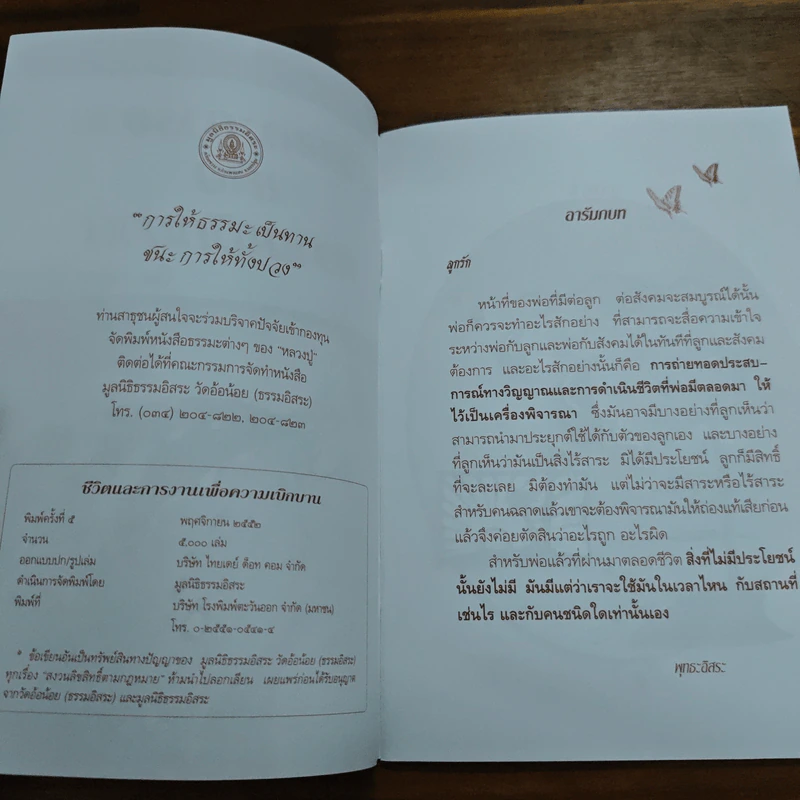 มูลนิธิธรรมอิสระ
"การให้ธรรมะเป็นทาน
ชนะ การให้ทั้งปวง"
ท่านสาธุชนผู้สนใจจะร่วมบริจาคปัจจัยเข้ากองทุน
จัดพิมพ์หนังสือธรรมะต่างๆ ของ "หลวงปู่"
ติดต่อได้ที่คณะกรรมการจัดทำหนังสือ
มูลนิธิธรรมอิสระ วัดอ้อน้อย (ธรรมอิสระ)
โทร. (๐๓๔) ๒๐๔-๘๒๒, ๒๐๔-๘๒๓
ชีวิตและการงานเพื่อความเบิกบาน
พิมพ์ครั้งที่ ๕ พฤศจิกายน ๒๕๕๒
จำนวน ๕,๐๐๐ เล่ม
ออกแบบปก/รูปเล่ม บริษัท ไทยเดย์ ด็อท คอม จำกัด
ดำเนินการจัดพิมพ์โดย มูลนิธิธรรมอิสระ
พิมพ์ที่ บริษัท โรงพิมพ์ตะวันออก จำกัด (มหาชน)
โทร. ๐-๒๕๕๑-๐๕๔๑-๔
* ข้อเขียนอันเป็นทรัพย์สินทางปัญญาของ มูลนิธิธรรมอิสระ วัดอ้อน้อย (ธรรมอิสระ)
ทุกเรื่อง "สงวนลิขสิทธิ์ตามกฎหมาย" ห้ามนำไปลอกเลียน เผยแพร่ก่อนได้รับอนุญาต
จากวัดอ้อน้อย (ธรรมอิสระ) และมูลนิธิธรรมอิสระ
อารัมภบท
ลูกรัก
หน้าที่ของพ่อที่มีต่อลูก ต่อสังคมจะสมบูรณ์ได้นั้น
พ่อก็ควรจะทำอะไรสักอย่าง ที่สามารถจะสื่อความเข้าใจ
ระหว่างพ่อกับลูกและพ่อกับสังคมได้ในทันทีที่ลูกและสังคม
ต้องการ และอะไรสักอย่างนั้นก็คือ การถ่ายทอดประสบ-
การณ์ทางวิญญาณและการดำเนินชีวิตที่พ่อมีตลอดมา ให้
ไว้เป็นเครื่องพิจารณา ซึ่งมันอาจมีบางอย่างที่ลูกเห็นว่า
สามารถนำมาประยุกต์ใช้ได้กับตัวของลูกเอง และบางอย่าง
ที่ลูกเห็นว่ามันเป็นสิ่งไร้สาระ มิได้มีประโยชน์ ลูกก็มีสิทธิ์
ที่จะละเลย มิต้องทำมัน แต่ไม่ว่าจะมีสาระหรือไร้สาระ
สำหรับคนฉลาดแล้วเขาจะต้องพิจารณามันให้ถ่องแท้เสียก่อน
แล้วจึงค่อยตัดสินว่าอะไรถูก อะไรผิด
สำหรับพ่อแล้วที่ผ่านมาตลอดชีวิต สิ่งที่ไม่มีประโยชน์
นั้นยังไม่มี มันมีแต่ว่าเราจะใช้มันในเวลาไหน กับสถานที่
เช่นไร และกับคนชนิดใดเท่านั้นเอง
พุทธะอิสระ